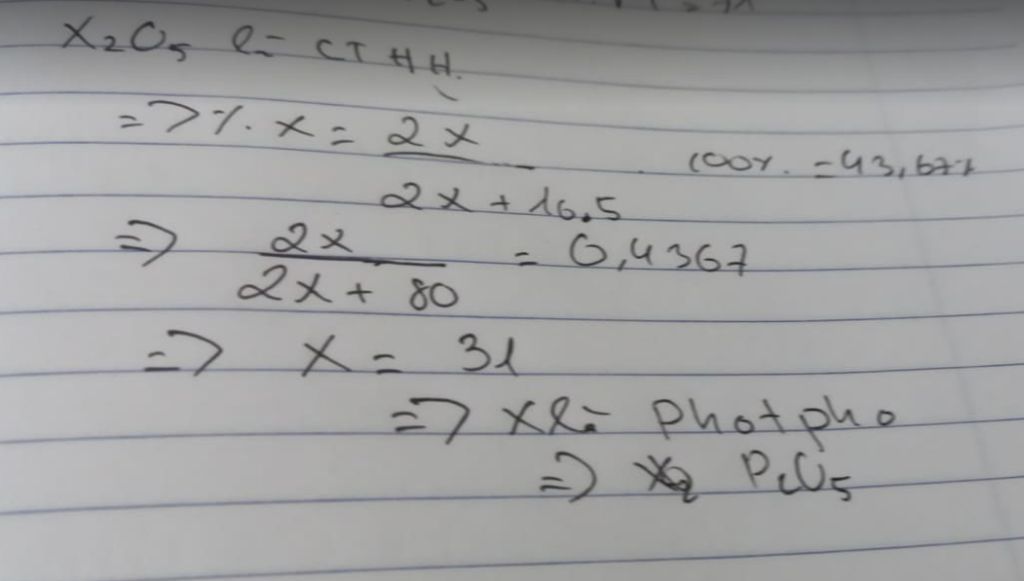 X₂O₅ là CT HH.
=> %. X = 2X / 2X + 16.5 . 100%. = 43,67%
=> 2X / 2X + 80 = 0,4367
=> X = 31
=> X là Photpho
=> P₂O₅